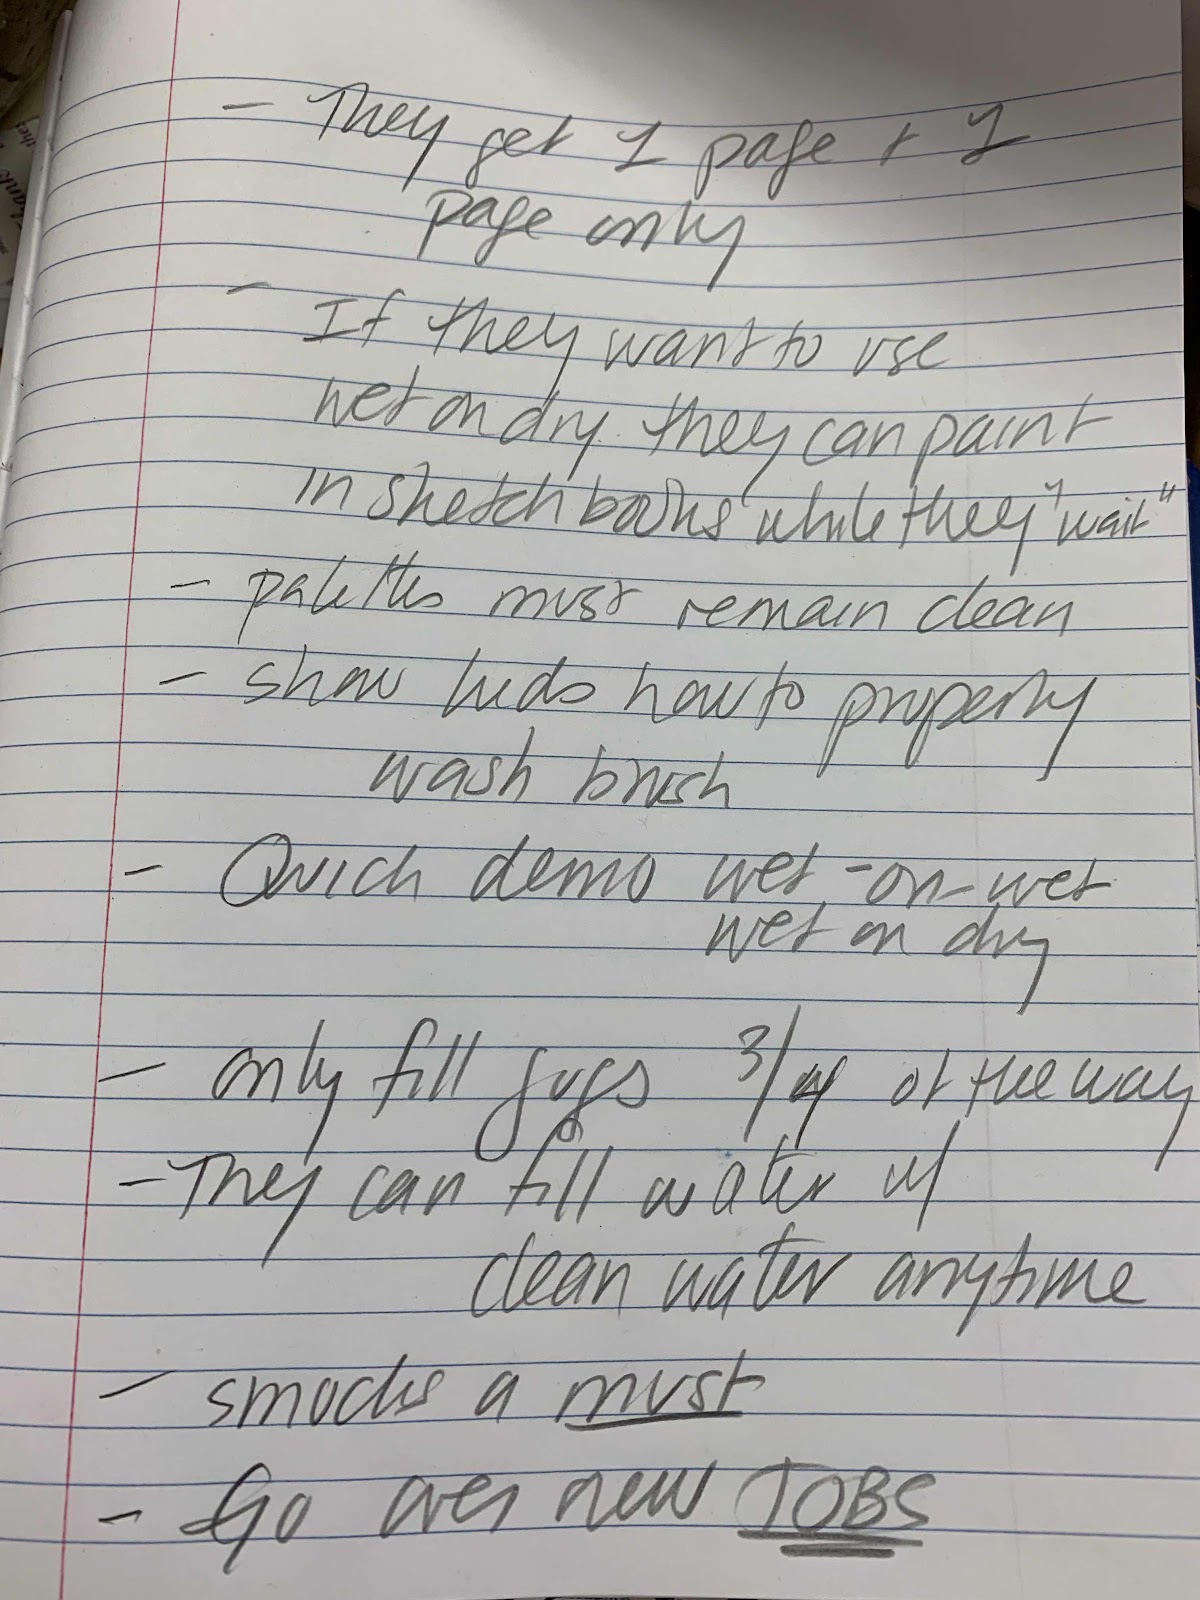 - They get 1 page + 1
page only
- If they want to use
wet on dry they can paint
in sketchbooks while they "wait"
- palettes must remain clean
- show kids how to properly
wash brush
- Quick demo wet-on-wet
wet on dry
- only fill jugs 3/4 of the way
- They can fill water w/
clean water anytime
- smocks a must
- Go over new JOBS